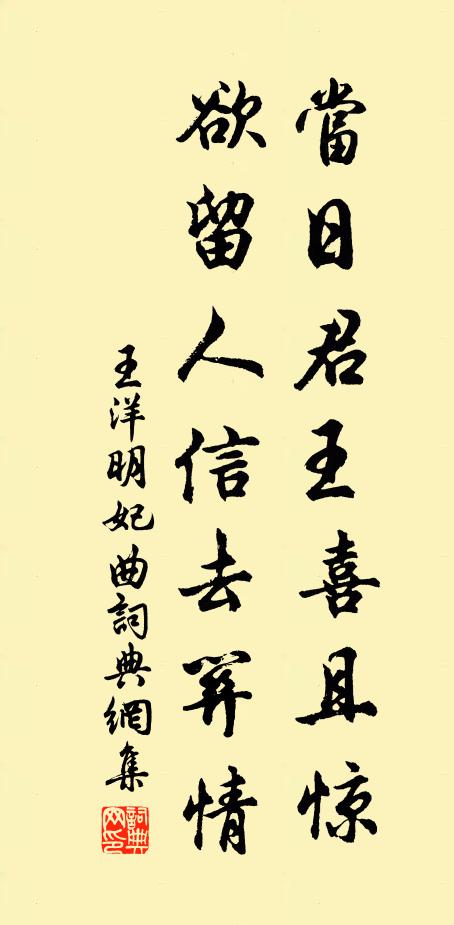 當日君王喜且惊
欲留人信去關情
王洋明妃曲詞典網集
詞典网印